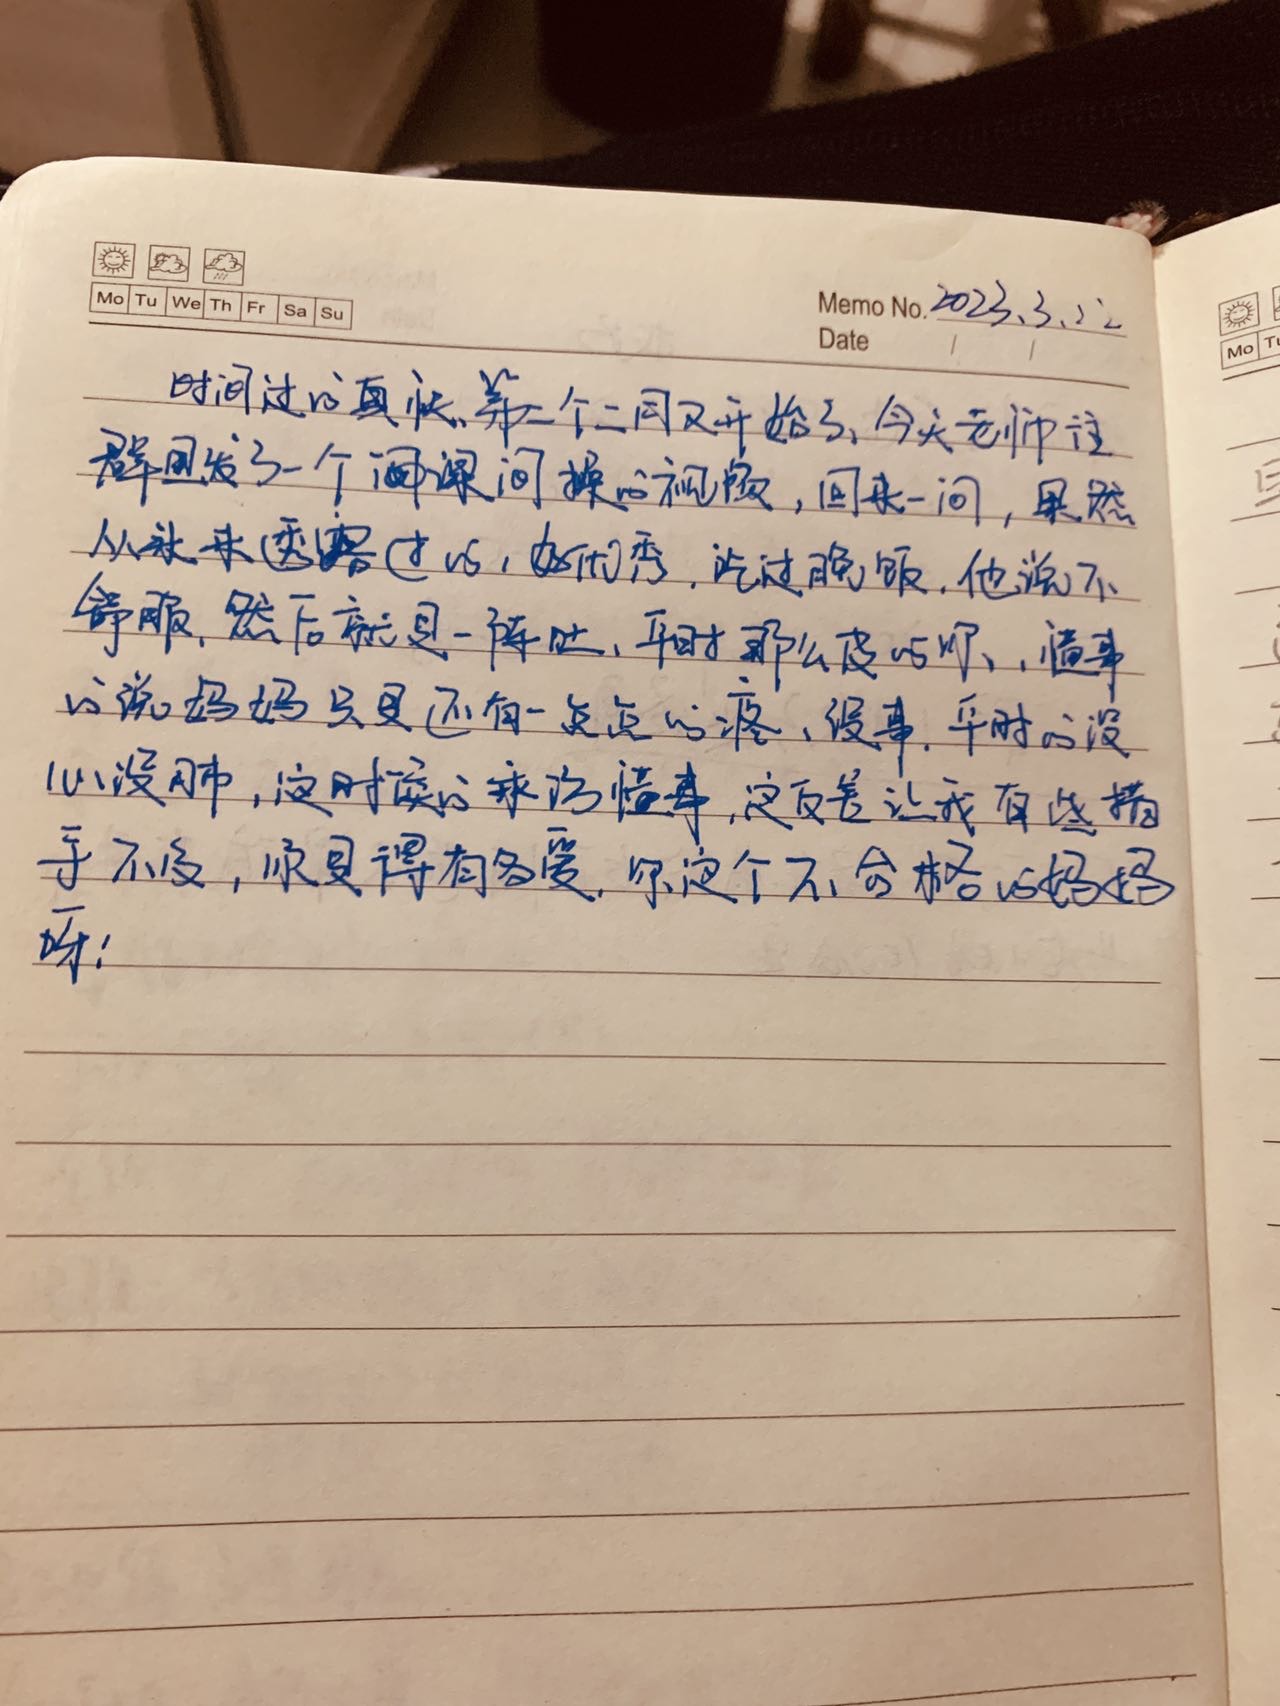 Mo Tu We Th Fr Sa Su
Memo No. 2023.3.22
Date / /
时间过的真快、第二个二周又开始了、今天老师往
群里发了一个 课间操的视频,回来一问,果然
从来未透露过的,好优秀.吃过晚饭.他说不
舒服.然后就是一阵吐、平时那么皮的你、,懂事
的说妈妈只是还有一点点的疼、没事.平时的没
心没肺,这时候的乖巧懂事,这反差让我有些措
手不及,顺其得有 爱.你这个不合格的妈妈
呀!
Mo